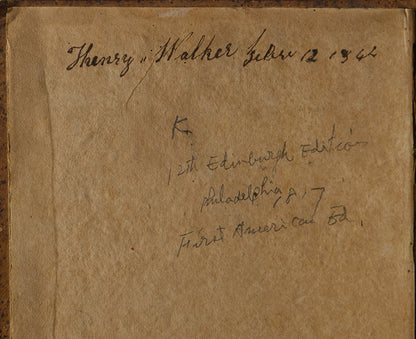 Thenry Walker 12
K
12th Edinburgh Edition
Philadelphia,
First American Ed.